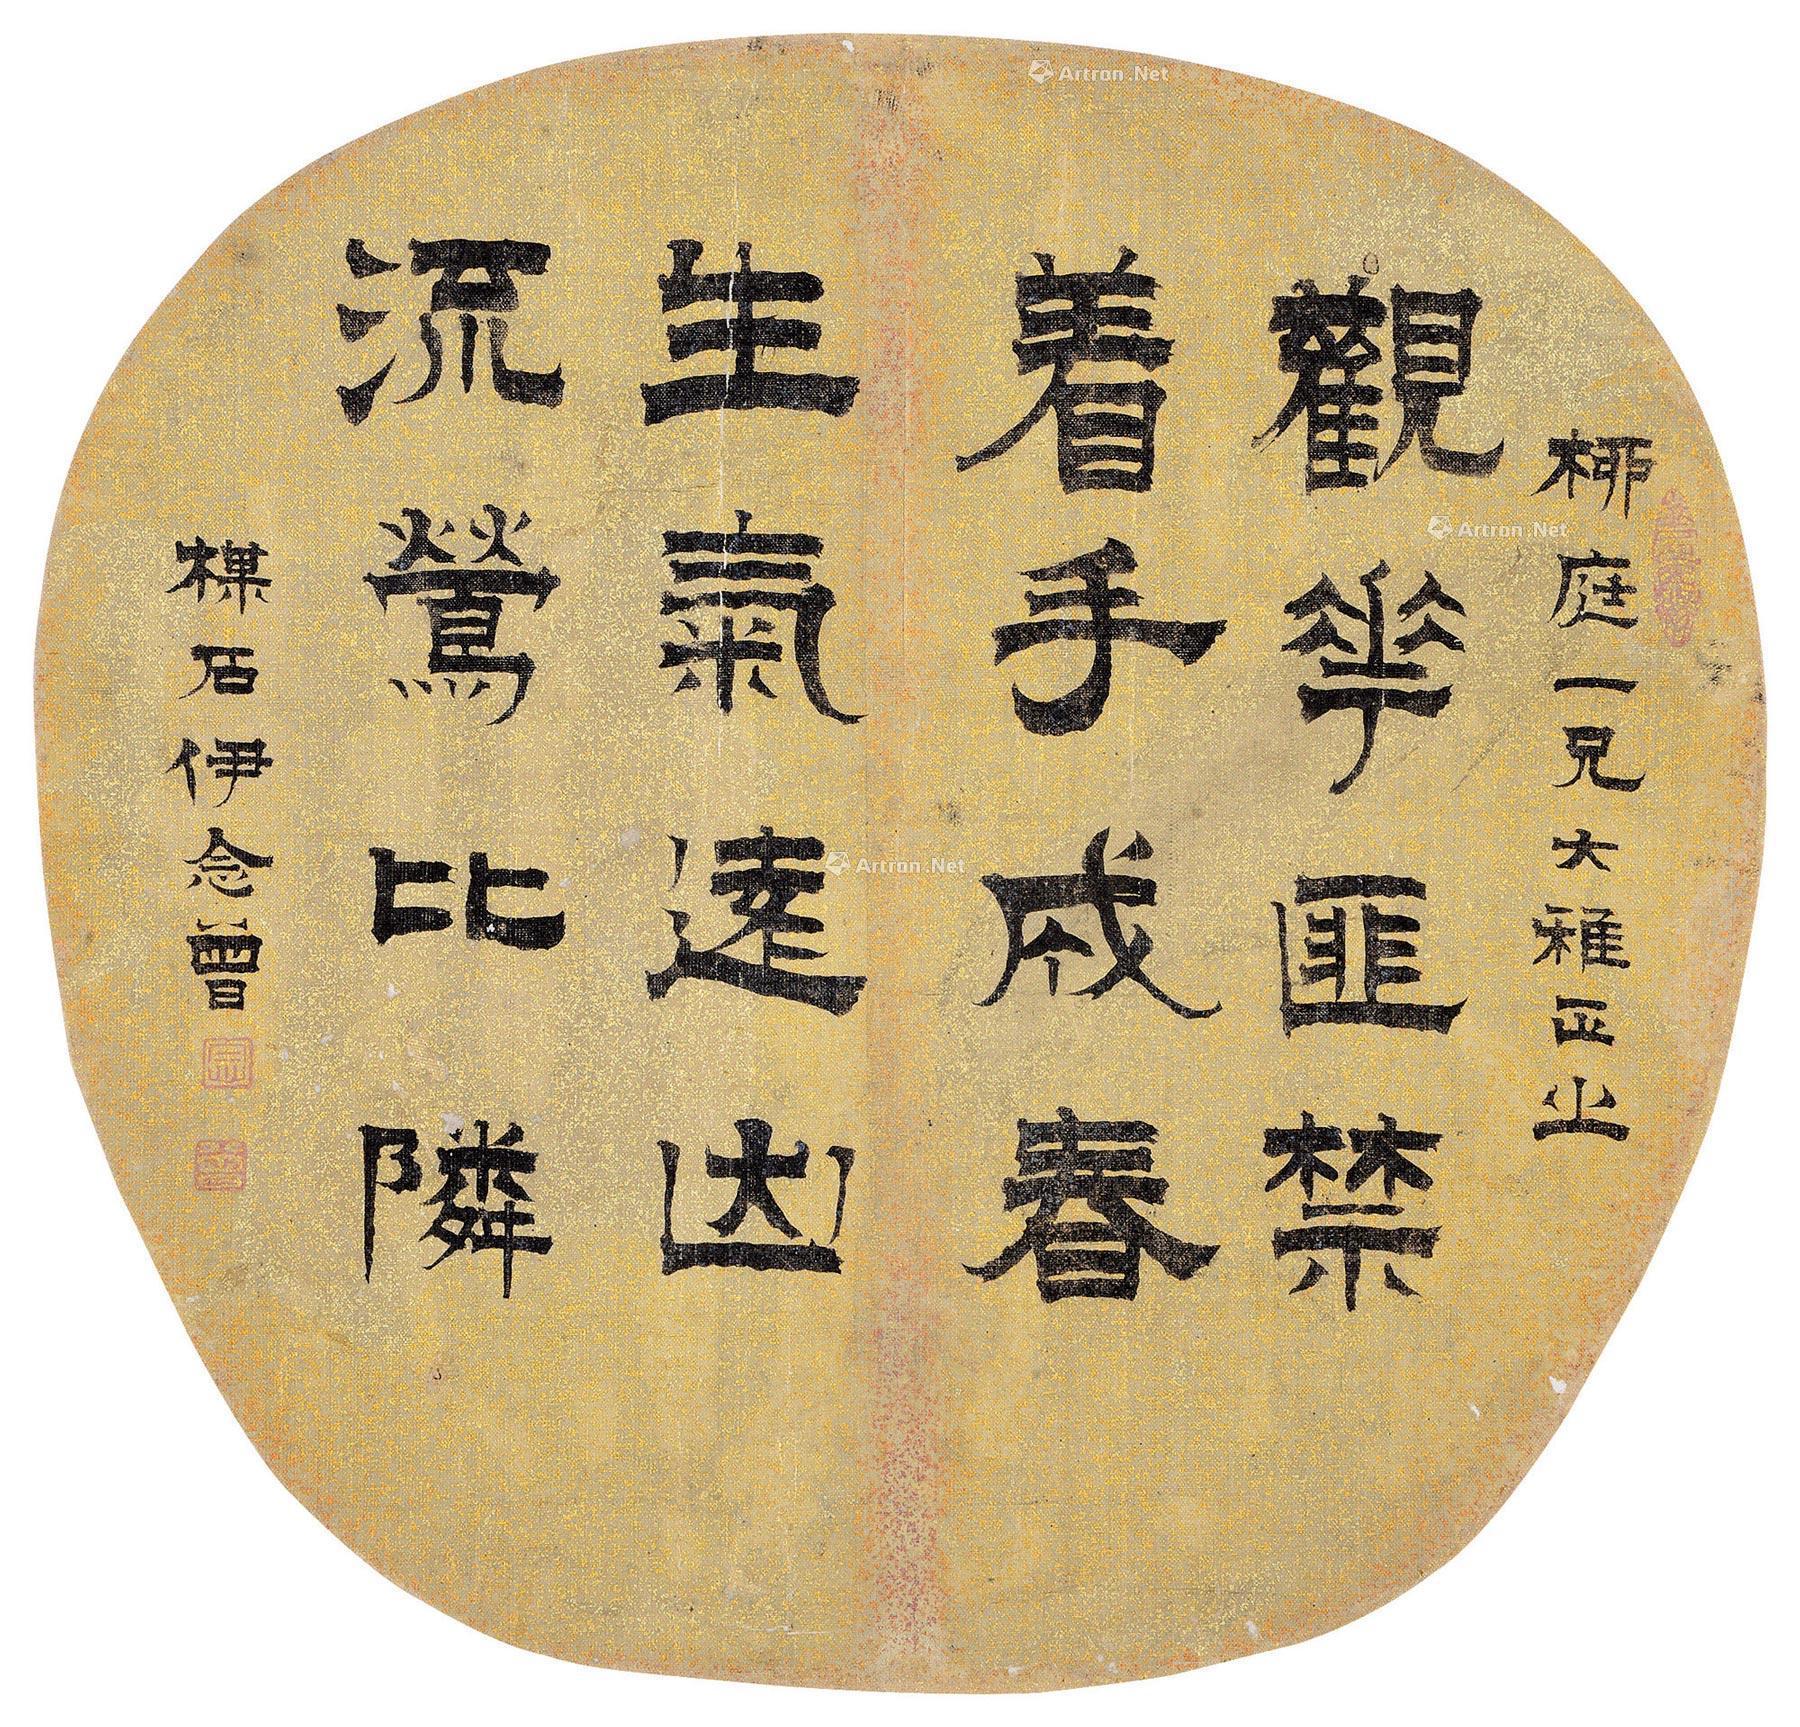 柳庭一兄大雅正之
觀華匪禁
着手成春
生氣遠出
流鶯比隣
楳石伊念曾
Artron.Net
Artron.Net
Artron.Net